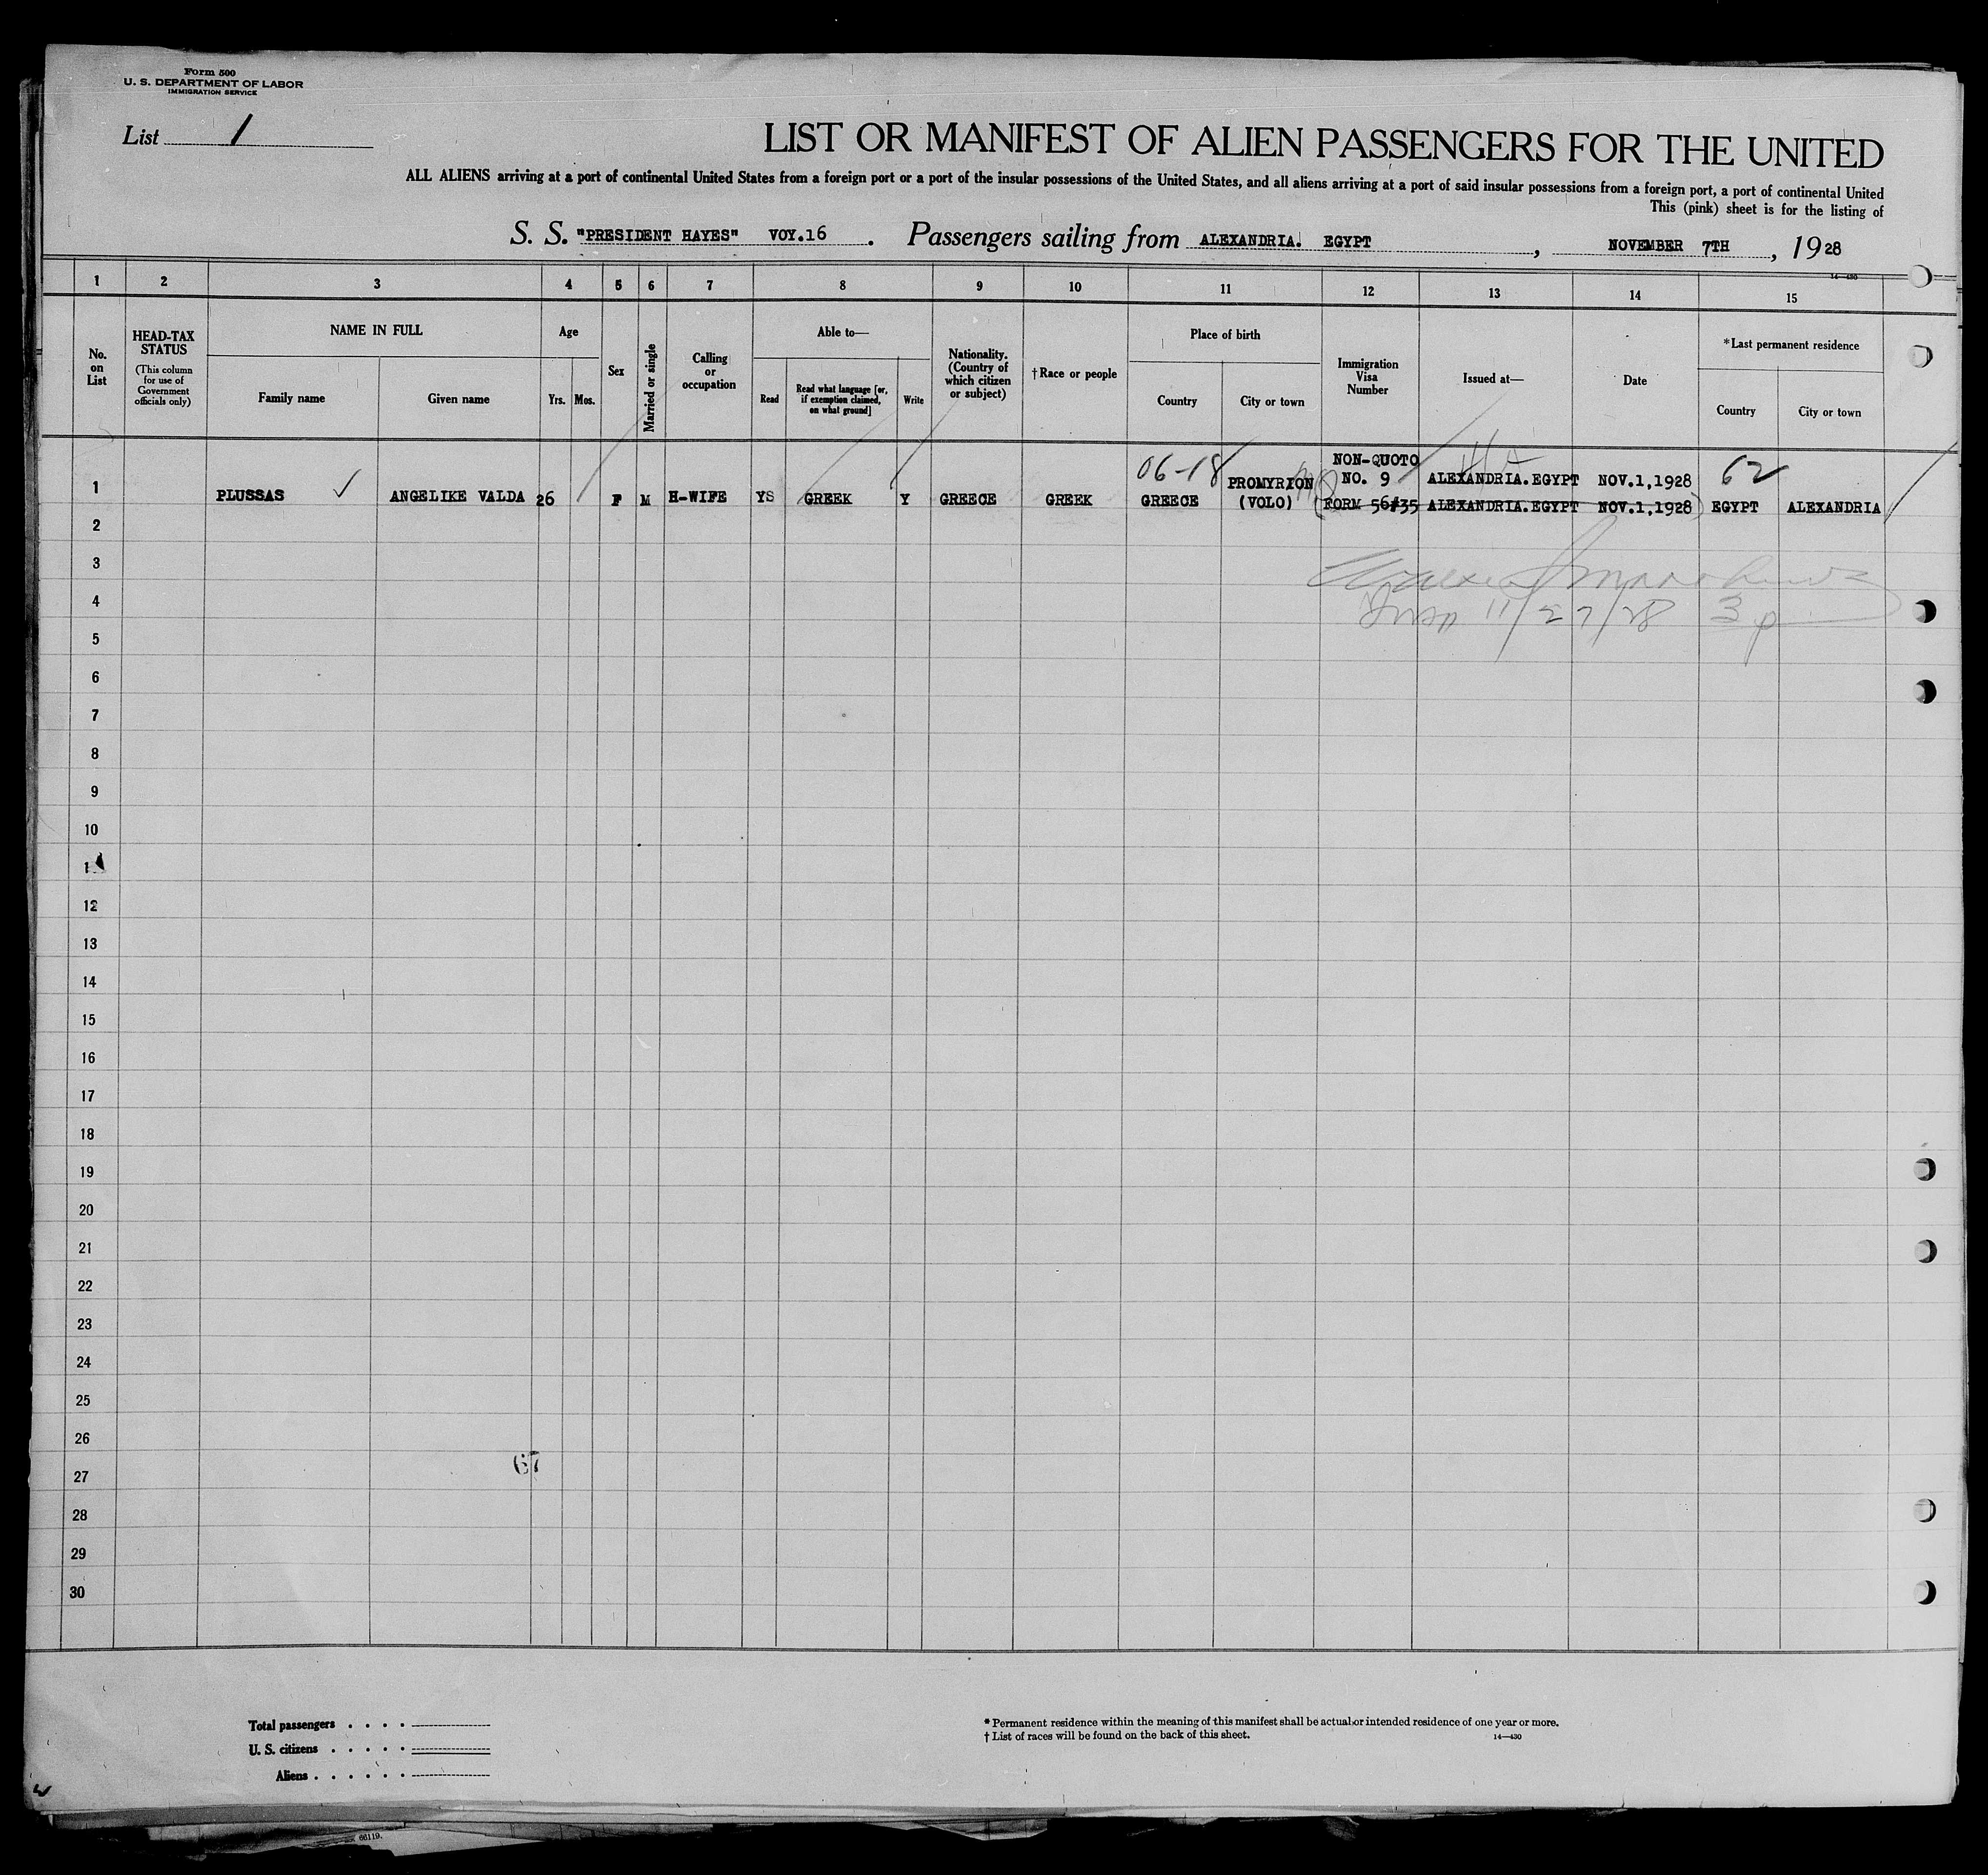 Form 500
U. S. DEPARTMENT OF LABOR
IMMIGRATION SERVICE
List 1
LIST OR MANIFEST OF ALIEN PASSENGERS FOR THE UNITED
ALL ALIENS arriving at a port of continental United States from a foreign port or a port of the insular possessions of the United States, and all aliens arriving at a port of said insular possessions from a foreign port, a port of continental United
This (pink) sheet is for the listing of
S. S. "PRESIDENT HAYES" VOY.16 . Passengers sailing from ALEXANDRIA. EGYPT , NOVEMBER 7TH , 1928
14—430
1 2 3 4 5 6 7 8 9 10 11 12 13 14 15
No. on List
HEAD-TAX STATUS
(This column for use of Government officials only)
NAME IN FULL
Family name Given name
Age
Yrs. Mos.
Sex
Married or single
Calling or occupation
Able to—
Read
Read what language [or, if exemption claimed, on what ground]
Write
Nationality. (Country of which citizen or subject)
†Race or people
Place of birth
Country City or town
Immigration Visa Number
Issued at—
Date
*Last permanent residence
Country City or town
06-18 NON-QUOTO 62
1 PLUSSAS ✓ ANGELIKE VALDA 26 F M H-WIFE YS GREEK Y GREECE GREEK GREECE PROMYRION NO. 9 ALEXANDRIA.EGYPT NOV.1,1928
(VOLO) (FORM 56#35 ALEXANDRIA.EGYPT NOV.1,1928) EGYPT ALEXANDRIA
2
3
4
11/27/28 3 p
5
6
7
8
9
10
1
12
13
14
15
16
17
18
19
20
21
22
23
24
25
26
67
27
28
29
30
Total passengers . . . .
U. S. citizens . . . . .
Aliens . . . . . .
* Permanent residence within the meaning of this manifest shall be actual or intended residence of one year or more.
† List of races will be found on the back of this sheet.
14—430
66119.